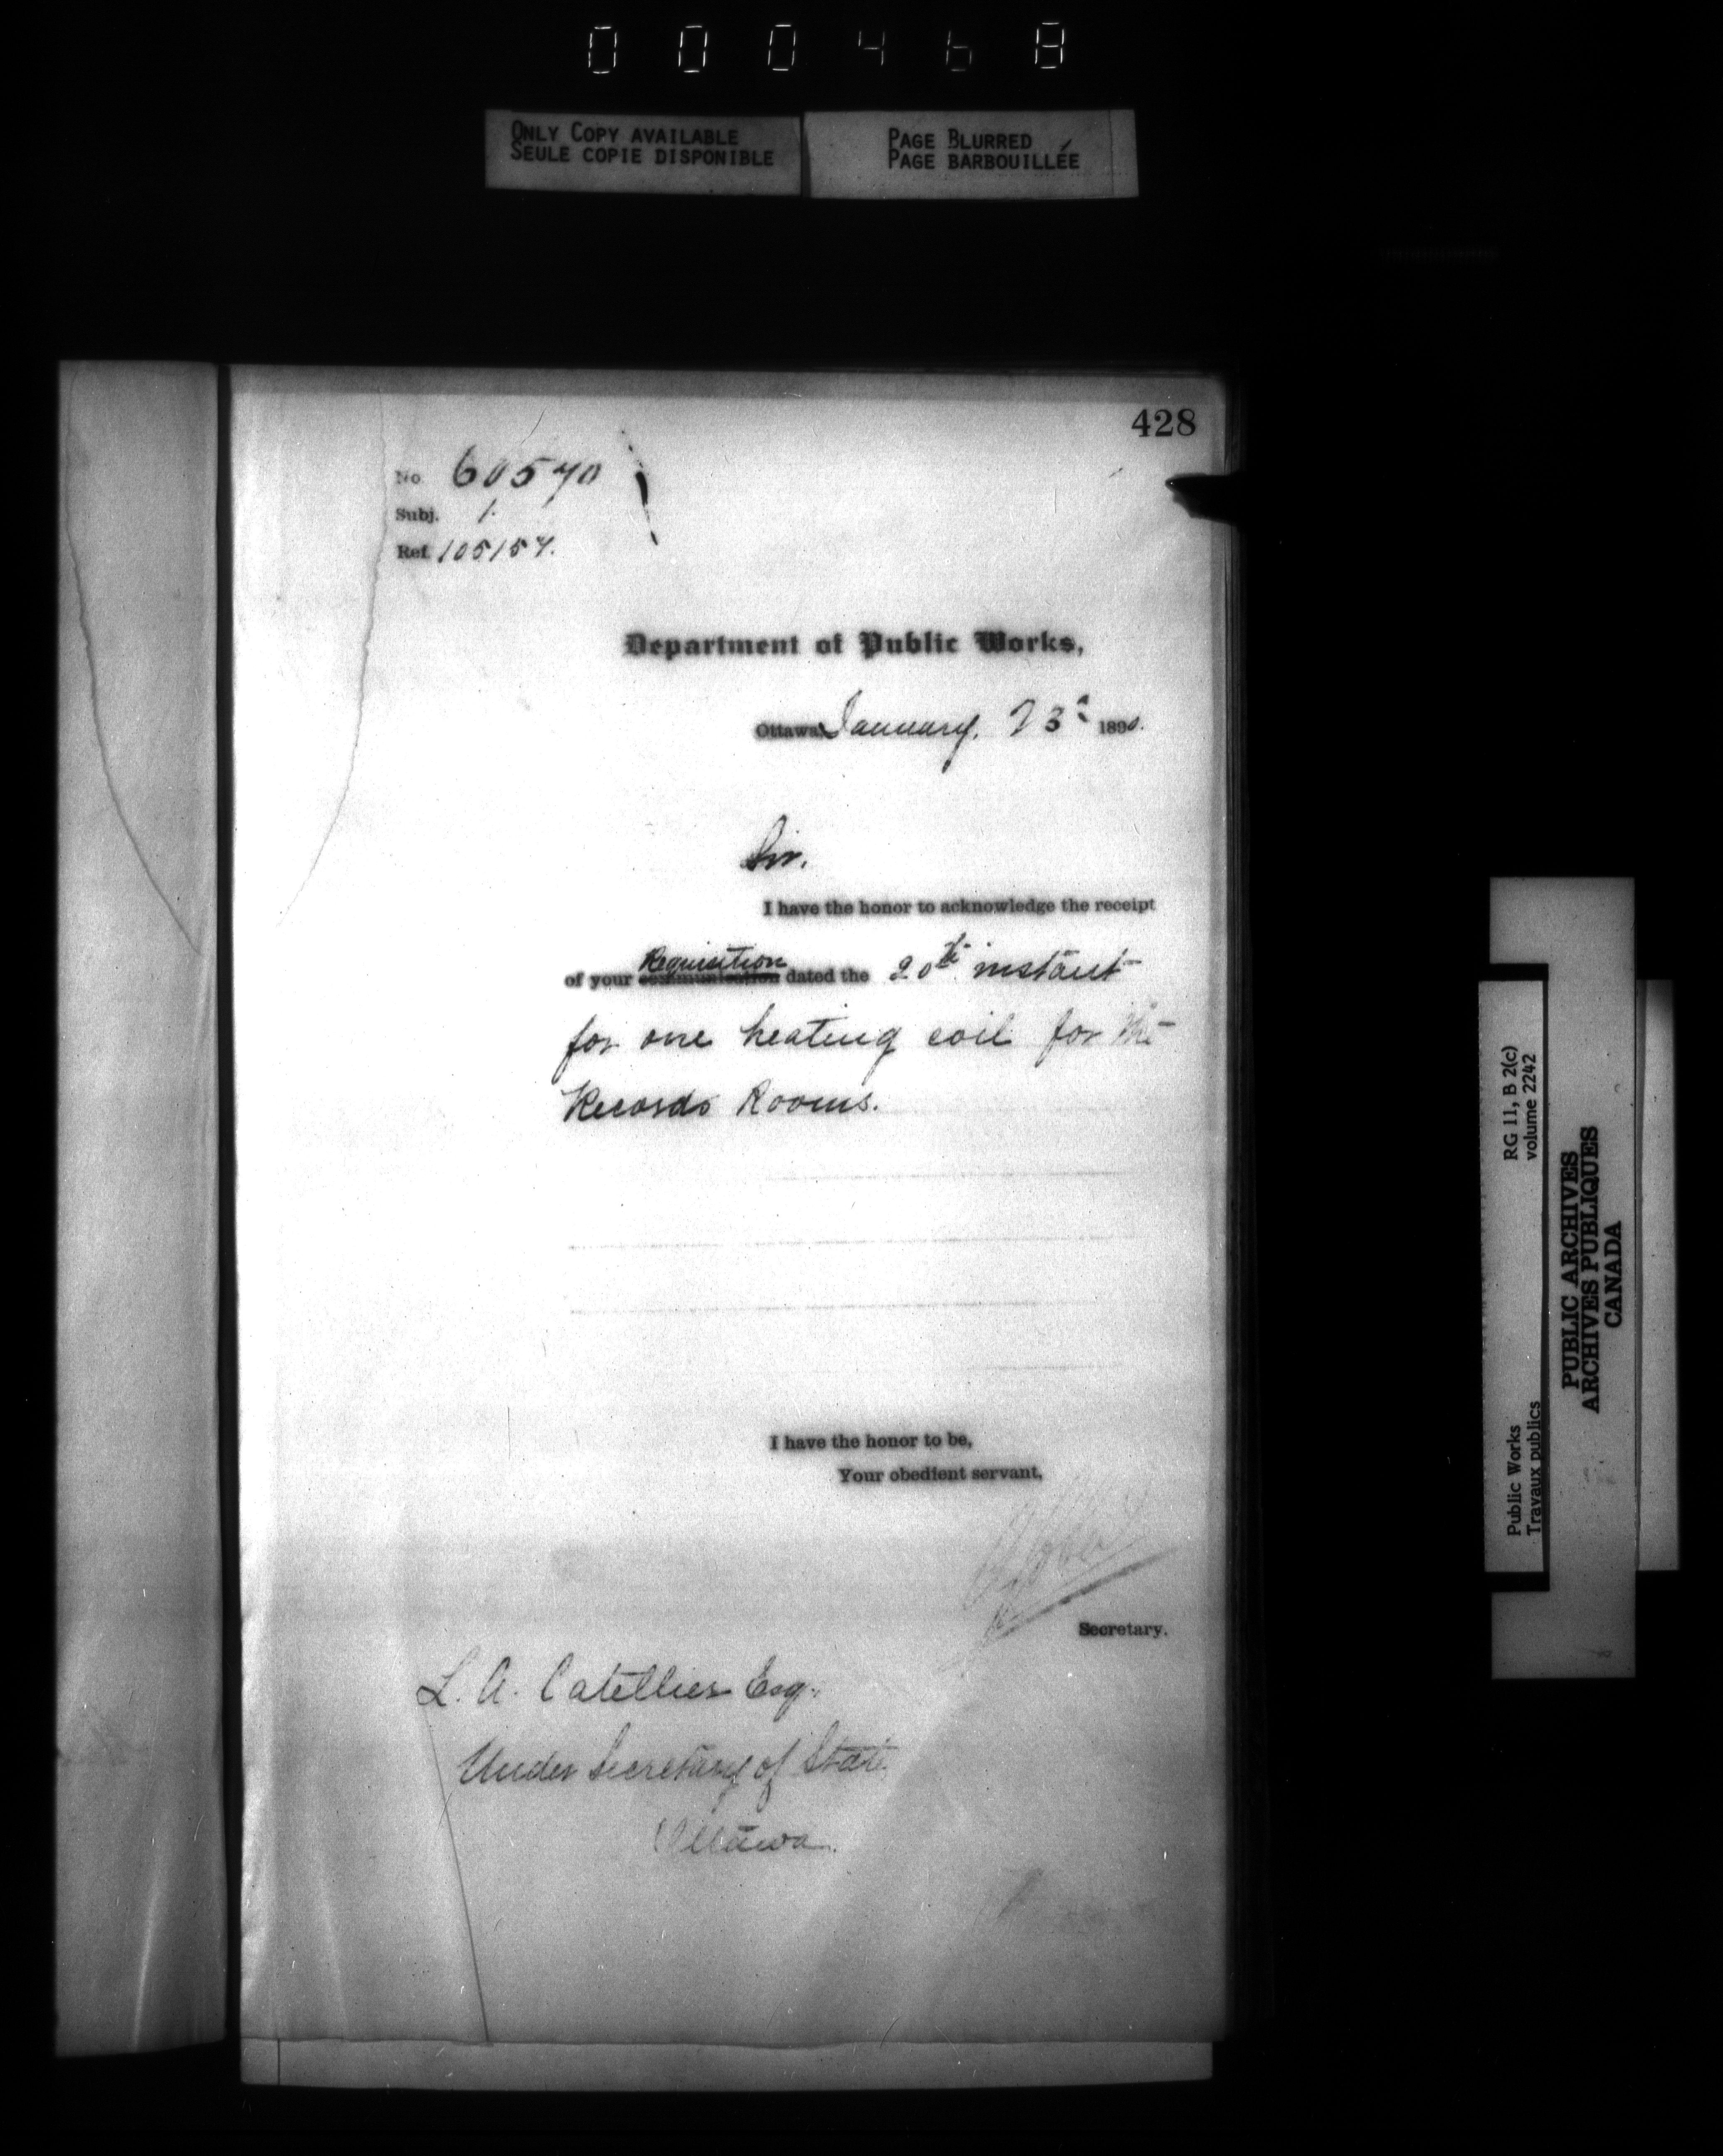 000468
ONLY COPY AVAILABLE
SEULE COPIE DISPONIBLE
PAGE BLURRED
PAGE BARBOUILLÉE
428
No 60570
Subj. 1.
Ref. 105157.
Department of Public Works,
Ottawa, January. 23d 1890.
Sir.
I have the honor to acknowledge the receipt
Requisition
of your communication dated the 20th instant
for one heating coil for the
Records Rooms.
I have the honor to be,
Your obedient servant,
Secretary.
L. A. Catellier Esq.
Under Secretary of State
Ottawa.
RG 11, B 2(c)
volume 2242
Public Works
Travaux publics
PUBLIC ARCHIVES
ARCHIVES PUBLIQUES
CANADA